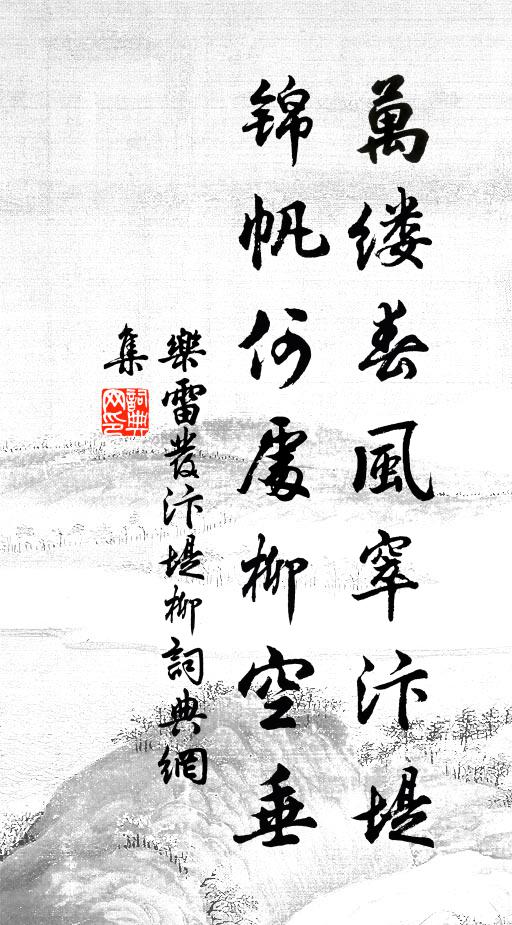 萬缕春風窣汴堤
锦帆何處柳空垂
樂雷發汴堤柳詞典網
集
詞典
网印